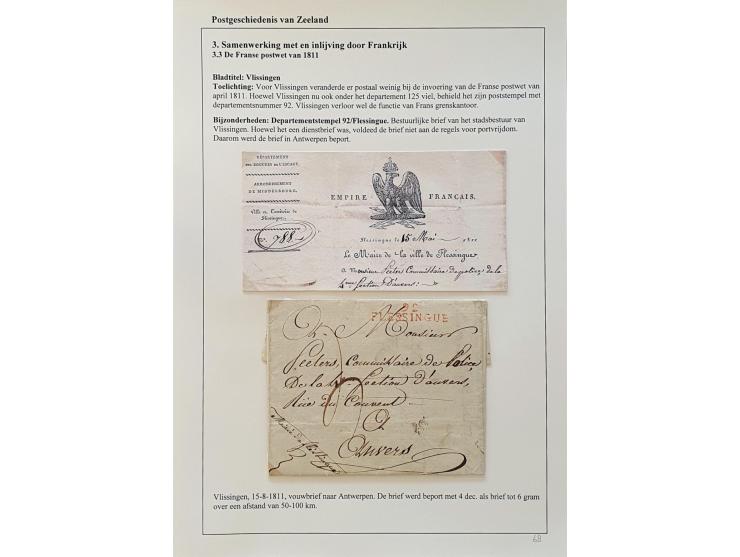 Postgeschiedenis van Zeeland
3. Samenwerking met en inlijving door Frankrijk
3.3 De Franse postwet van 1811
Bladtitel: Vlissingen
Toelichting: Voor Vlissingen veranderde er postaal weinig bij de invoering van de Franse postwet van
april 1811. Hoewel Vlissingen nu ook onder het departement 125 viel, behield het zijn poststempel met
departementsnummer 92. Vlissingen verloor wel de functie van Frans grenskantoor.
Bijzonderheden: Departementstempel 92/Flessingue. Bestuurlijke brief van het stadsbestuur van
Vlissingen. Hoewel het een dienstbrief was, voldeed de brief niet aan de regels voor portvrijdom.
Daarom werd de brief in Antwerpen beport.
DÉPARTEMENT
DES BOUCHES DE L'ESCAUT.
ARRONDISSEMENT
DE MIDDELBOURG.
Ville et Commune de
Flessingue.
N°. 788
EMPIRE FRANÇAIS.
Flessingue le 15 Mai
Le Maire de la ville de Flessingue
a Monsieur Peeters Commissaire de police de la
4me Section D'anvers:
92
FLESSINGUE
A Monsieur
Peeters, Commissaire de Police
De la 4me Section d'anvers,
Rue du Couvent
A
Anvers
Mairie de flessingue
Vlissingen, 15-8-1811, vouwbrief naar Antwerpen. De brief werd beport met 4 dec. als brief tot 6 gram
over een afstand van 50-100 km.
68